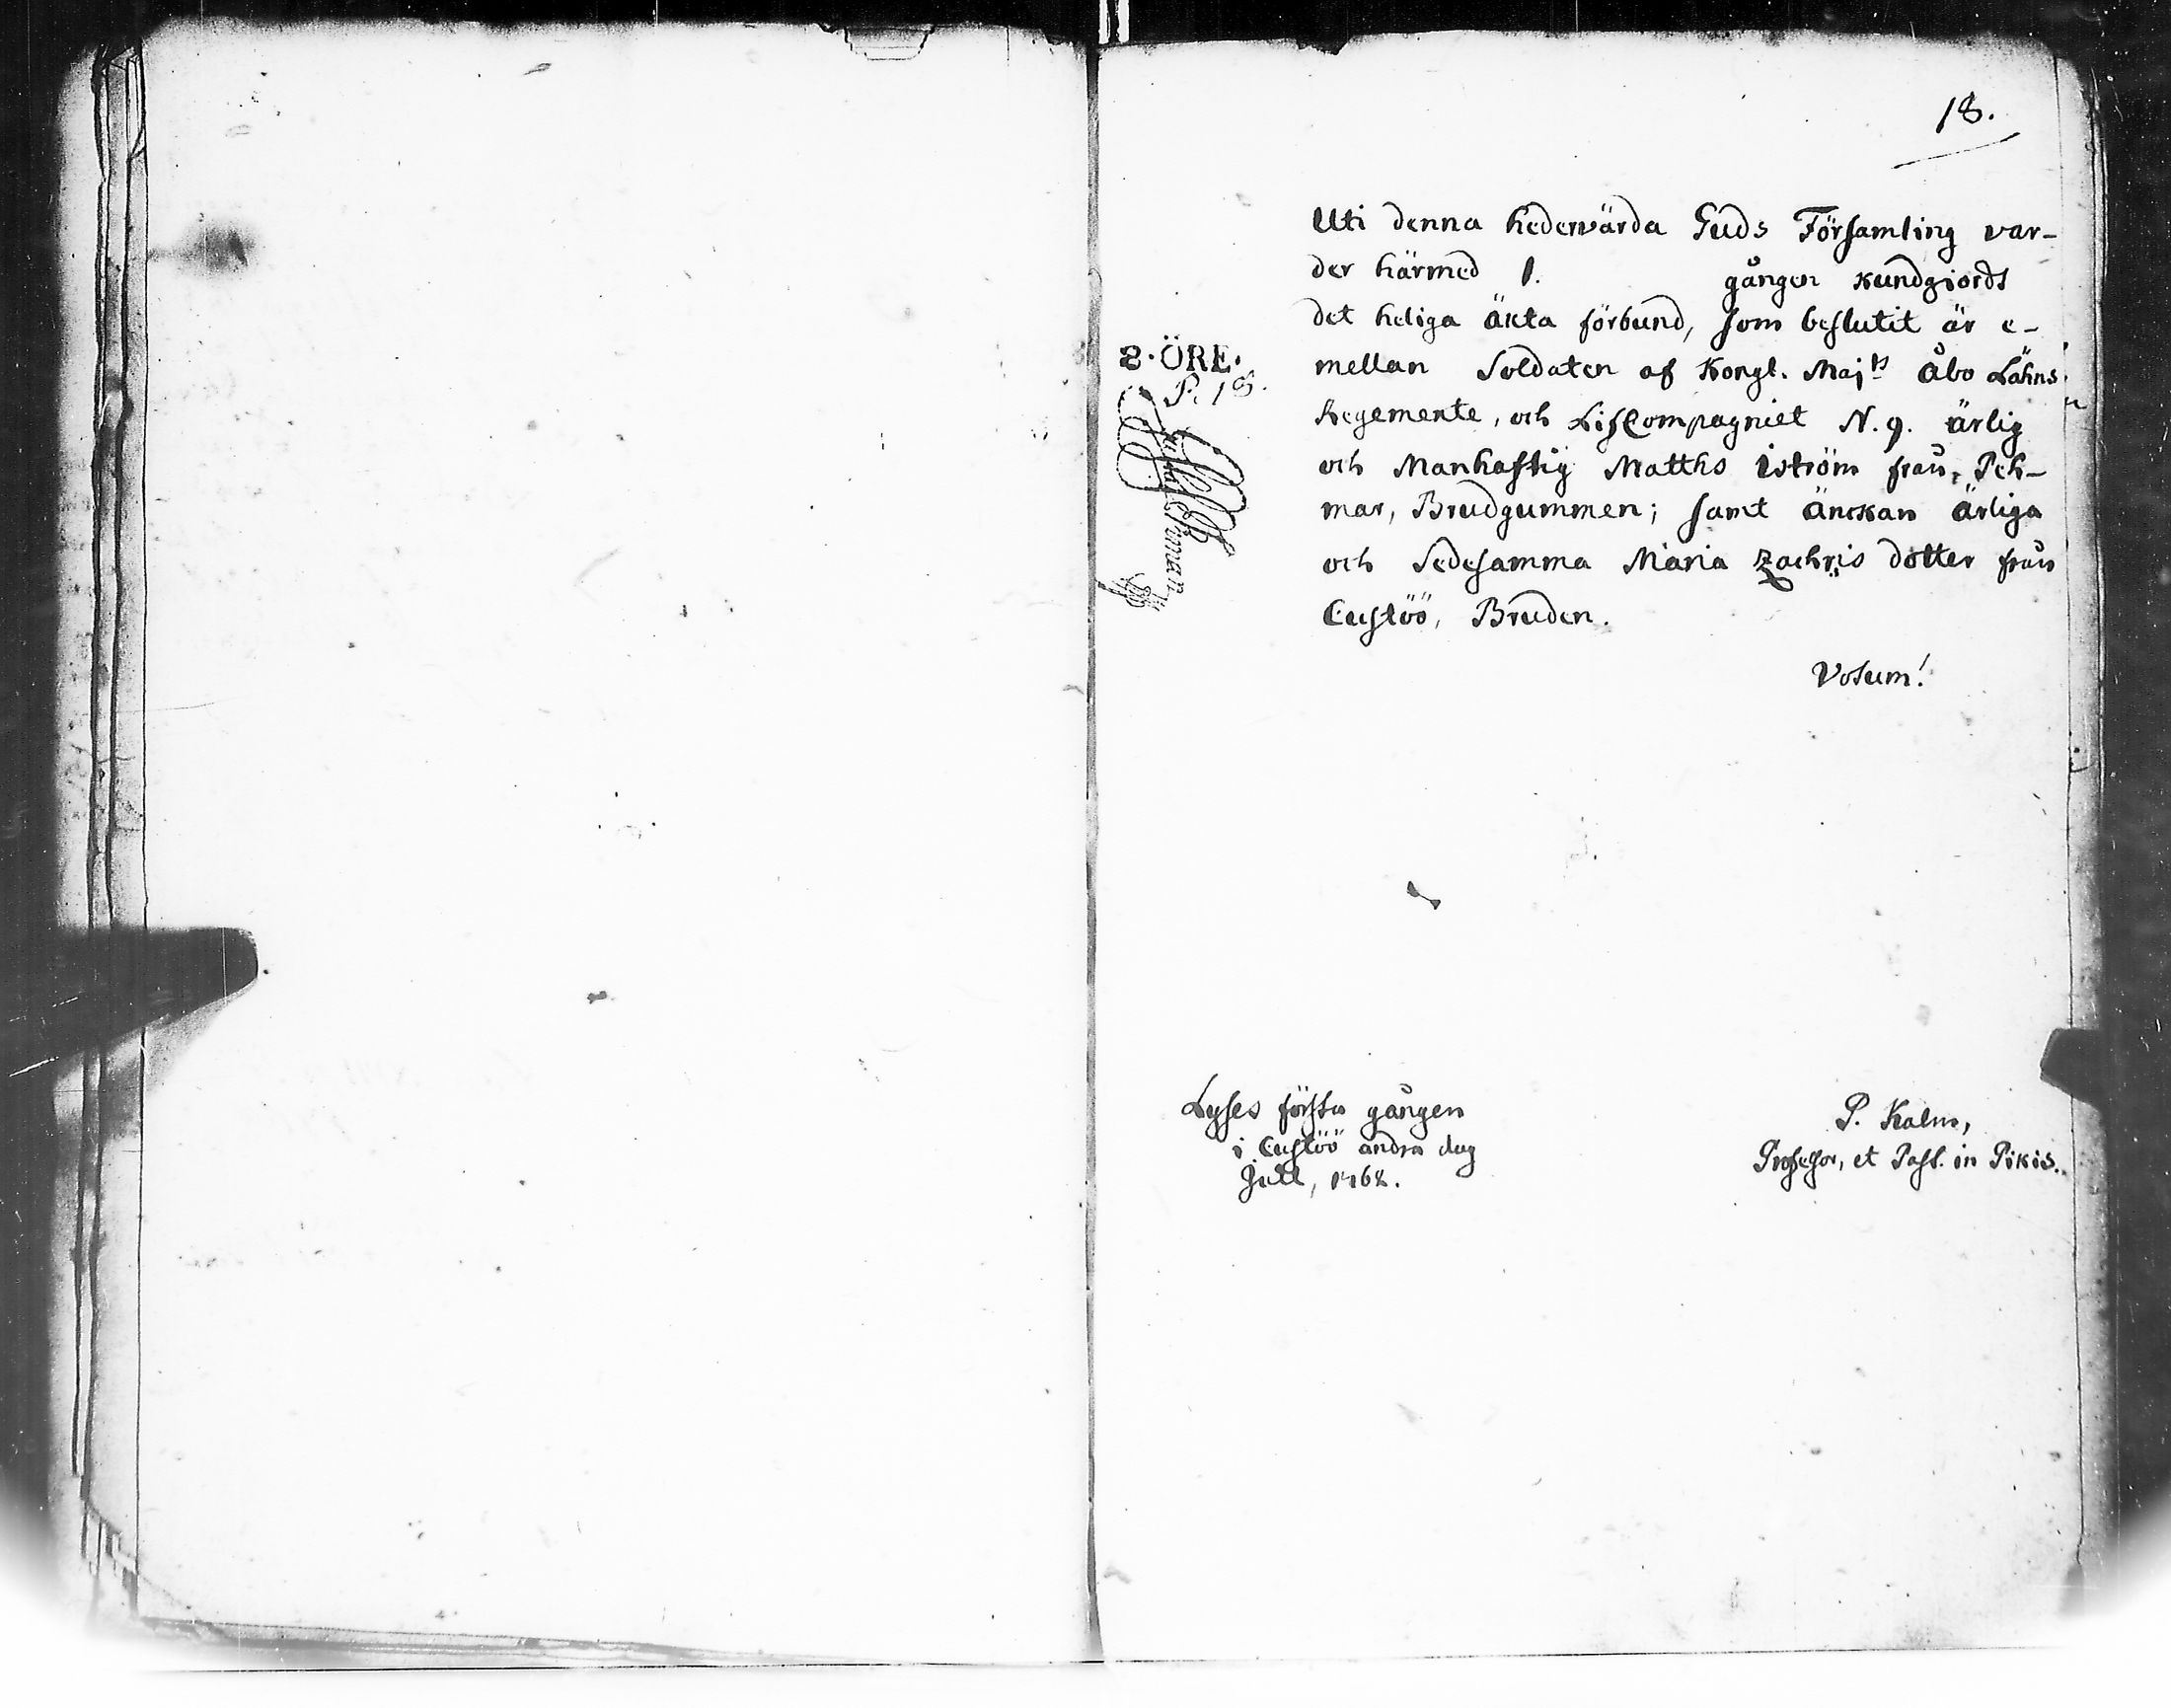 18.
Uti denna hedervärda Guds Församling var-
der härmed 1. gången kundgiordt
det heliga äkta förbund, som beslutit är e-
mellan Soldaten af Kongl. Maj:ts Åbo Lähns
Regemente, och LifCompagniet N. 9. ärlig
och Manhaftig Matths Iström från Peh-
mar, Brudgummen; samt änckan ärliga
och Sedesamma Maria Zachris dotter från
Custöö, Bruden.
Votum!
8. ÖRE.
P. 18.
Lyses första gången
i Custöö andra dag
Jull, 1762.
P. Kalm,
Professor, et Past. in Pikis.